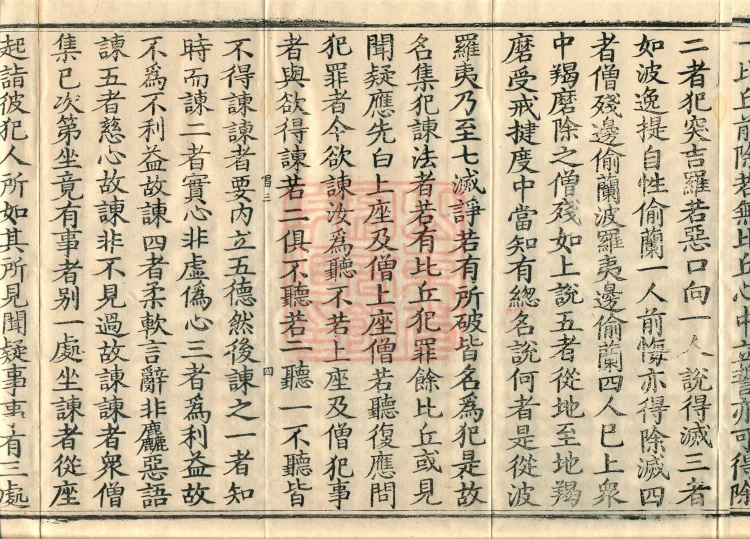 一比丘前除若無比丘心中誓亦可得除
二者犯突吉羅若惡口向一人說得滅三者
如波逸提自性偷蘭一人前悔亦得除滅四
者僧殘邊偷蘭波羅夷邊偷蘭四人已上衆
中羯磨除之僧殘如上說五者從地至地羯
磨受戒揵度中當知有緫名說何者是從波
羅夷乃至七滅諍若有所破皆名爲犯是故
名集犯諫法者若有比丘犯罪餘比丘或見
聞疑應先白上座及僧上座僧若聽復應問
犯罪者今欲諫汝爲聽不若上座及僧犯事
者與欲得諫若二俱不聽若二聽一不聽皆
三 四
不得諫諫者要內立五德然後諫之一者知
時而諫二者實心非虛僞心三者爲利益故
不爲不利益故諫四者柔軟言辭非麤惡語
諫五者慈心故諫非不見過故諫諫者衆僧
集已次第坐竟有事者別一處坐諫者從座
起詰彼犯人所如其所見聞疑事事有三處